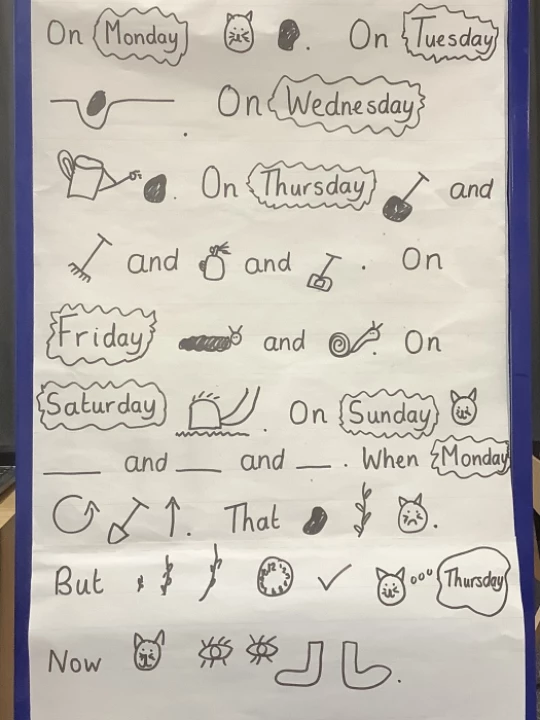 On Monday . On Tuesday
. On Wednesday
. On Thursday and
and and . On
Friday and . On
Saturday . On Sunday
___ and ___ and ___ . When Monday
. That .
But Thursday
Now .